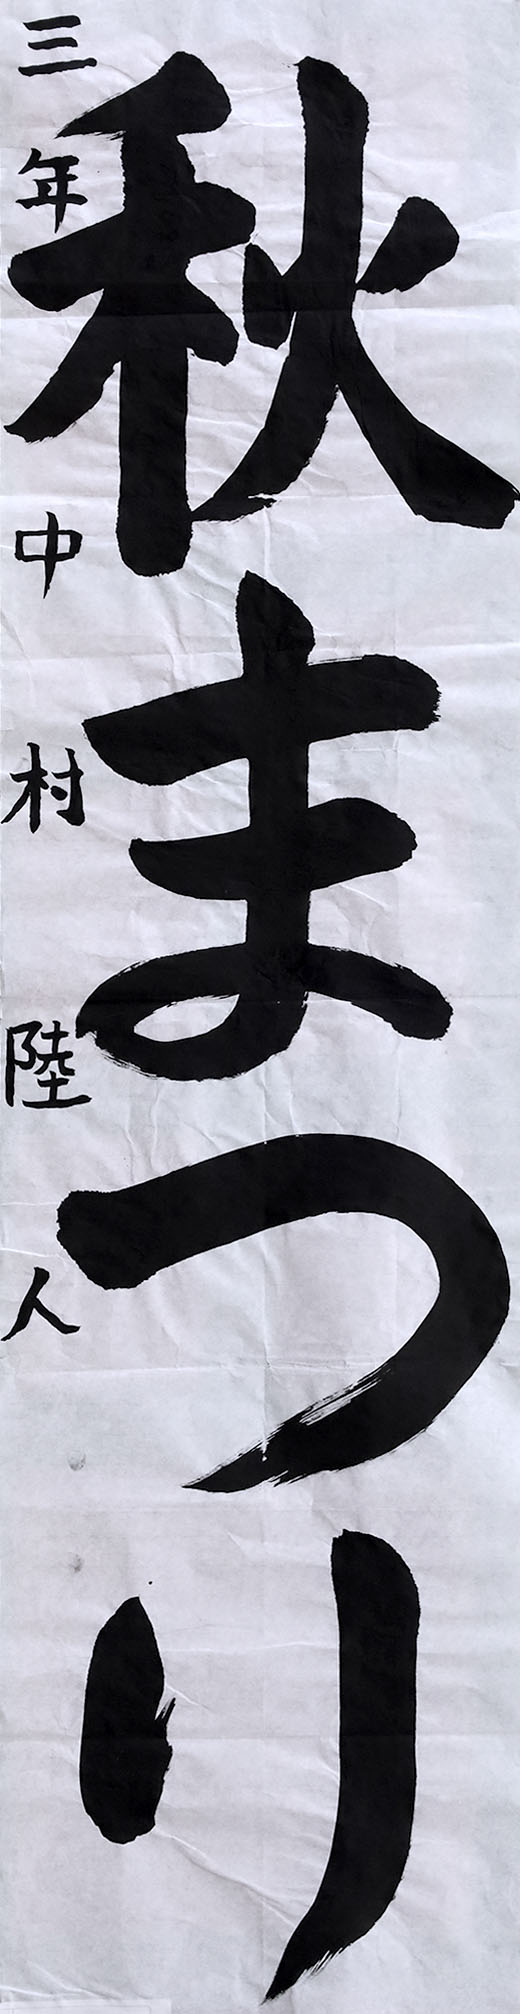 秋まつり
三年中村陸人